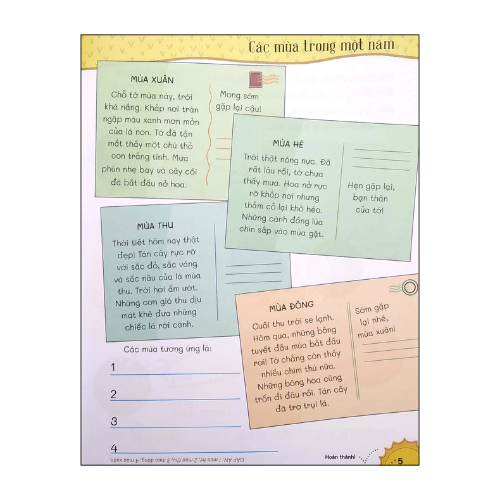 Các mùa trong một năm
MÙA XUÂN
Chỗ tớ mùa này, trời
khá nắng. Khắp nơi tràn
ngập màu xanh mơn mởn
của lá non. Tớ đã tận
mắt thấy một chú thỏ
con trắng tinh. Mưa
phùn nhẹ bay và cây cối
đã bắt đầu nở hoa.
Mong sớm
gặp lại cậu!
MÙA HÈ
Trời thật nóng nực. Đã
rất lâu rồi, tớ chưa
thấy mưa. Hoa nở rực
rỡ khắp nơi nhưng
thảm cỏ lại khô héo.
Những cánh đồng lúa
chín sắp vào mùa gặt.
Hẹn gặp lại,
bạn thân
của tớ!
MÙA THU
Thời tiết hôm nay thật
đẹp! Tán cây rực rỡ
với sắc đỏ, sắc vàng
và sắc nâu của lá mùa
thu. Trời hơi ẩm ướt.
Những cơn gió thu dịu
mát khẽ đưa những
chiếc lá rời cành.
MÙA ĐÔNG
Cuối thu trời se lạnh.
Hôm qua, những bông
tuyết đầu mùa bắt đầu
rơi! Tớ chẳng còn thấy
nhiều chim thú nữa.
Những bông hoa cũng
trốn đi đâu rồi. Tán cây
đã trơ trụi lá.
Sớm gặp
lại nhé,
mùa xuân!
Các mùa tương ứng là:
1
2
3
4
Hoàn thành!
5